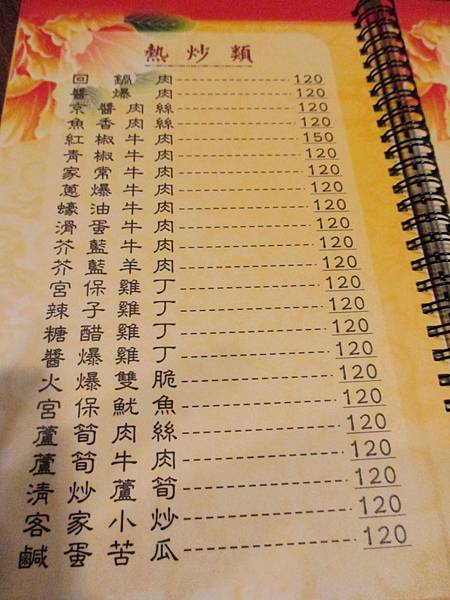 熱炒類
回鍋肉 120
醬爆肉 120
京醬肉絲 120
魚香肉絲 120
紅椒牛肉 150
青椒牛肉 120
家常牛肉 120
蔥爆牛肉 120
蠔油牛肉 120
滑蛋牛肉 120
芥藍牛肉 120
芥藍羊肉 120
宮保雞丁 120
辣子雞丁 120
糖醋雞丁 120
醬爆雞丁 120
火爆雙脆 120
宮保魷魚 120
蘆筍肉絲 120
蘆筍牛肉 120
清炒蘆筍 120
客家小炒 120
鹹蛋苦瓜 120